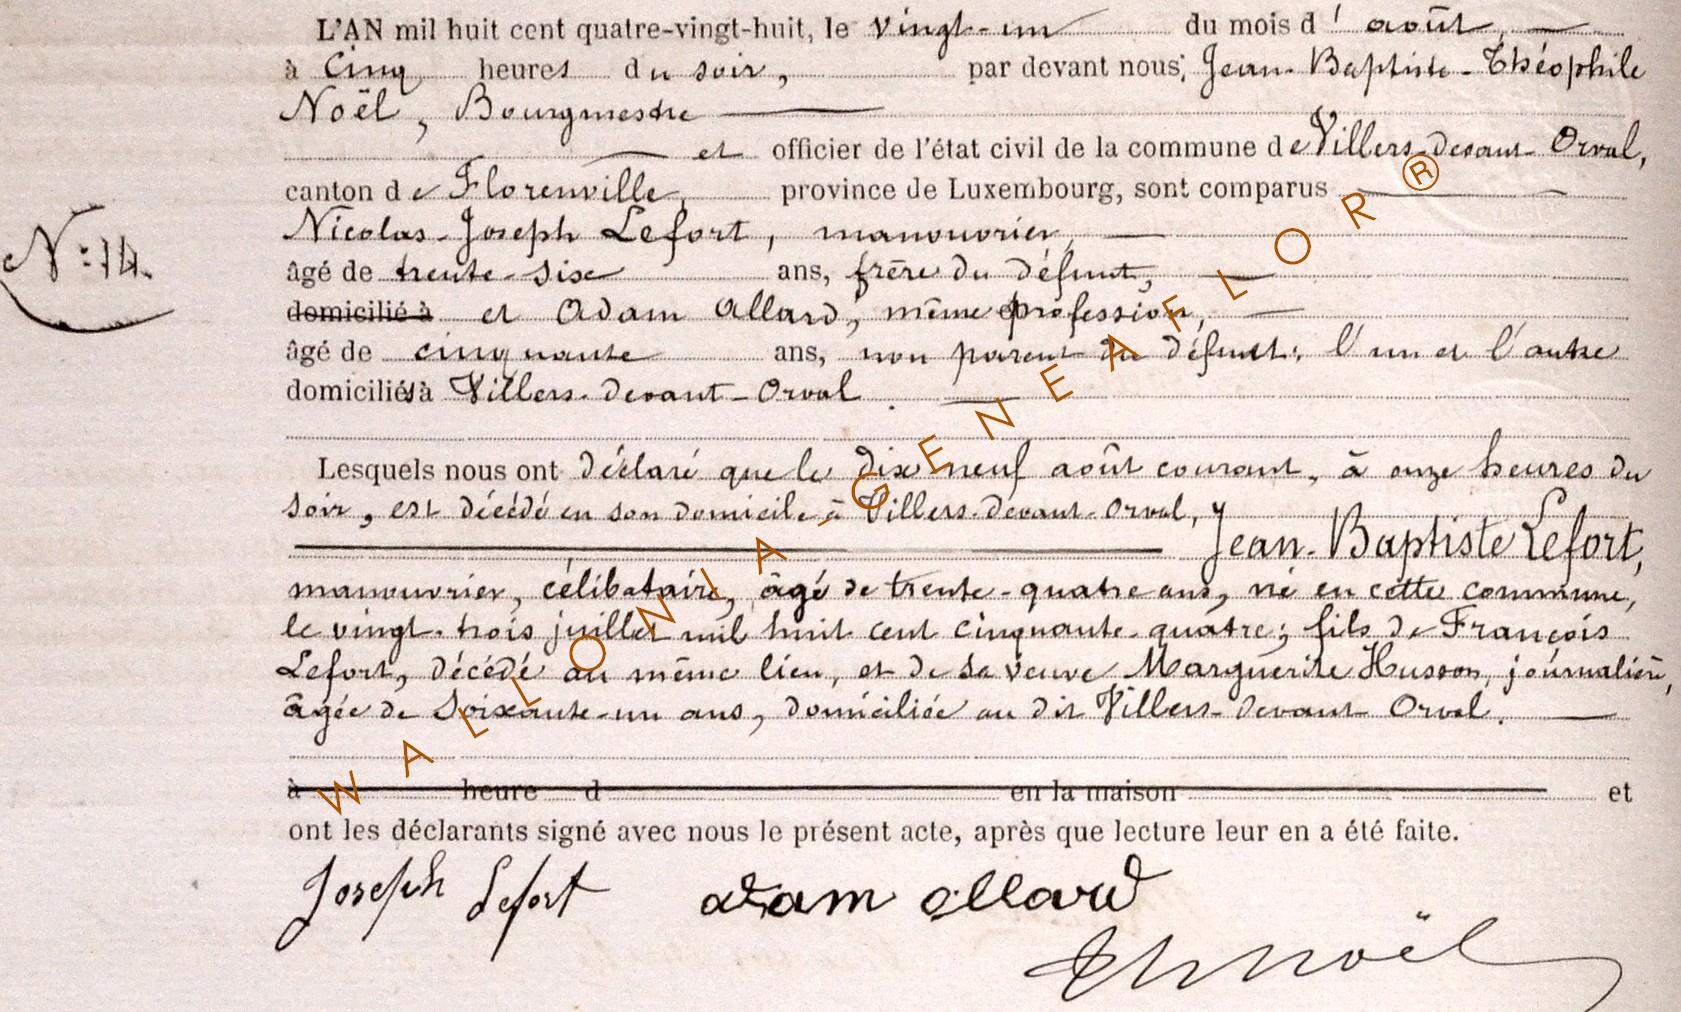 L'AN mil huit cent quatre-vingt-huit, le vingt-un du mois d' août,
à cinq heures du soir, par devant nous, Jean-Baptiste-Théophile
Noël, Bourgmestre
et officier de l'état civil de la commune de Villers-devant-Orval,
canton de Florenville, province de Luxembourg, sont comparus
Nicolas-Joseph Lefort, manouvrier,
N° 14.
âgé de trente-six ans, frère du défunt,
domicilié à et Adam Allard, même profession,
âgé de cinquante ans, non parent du défunt; l'un et l'autre
domiciliés à Villers-devant-Orval.
Lesquels nous ont déclaré que le dix-neuf août courant, à onze heures du
soir, est décédé en son domicile à Villers-devant-Orval,
Jean-Baptiste Lefort,
manouvrier, célibataire, âgé de trente-quatre ans, né en cette commune,
le vingt-trois juillet mil huit cent cinquante-quatre; fils de François
Lefort, décédé au même lieu, et de sa veuve Marguerite Husson, journalière,
âgée de soixante-un ans, domiciliée au dit Villers-devant-Orval.
à heure d en la maison et
ont les déclarants signé avec nous le présent acte, après que lecture leur en a été faite.
Joseph Lefort adam allard
Th Noël
WALLONIA-GENEAFLOR®